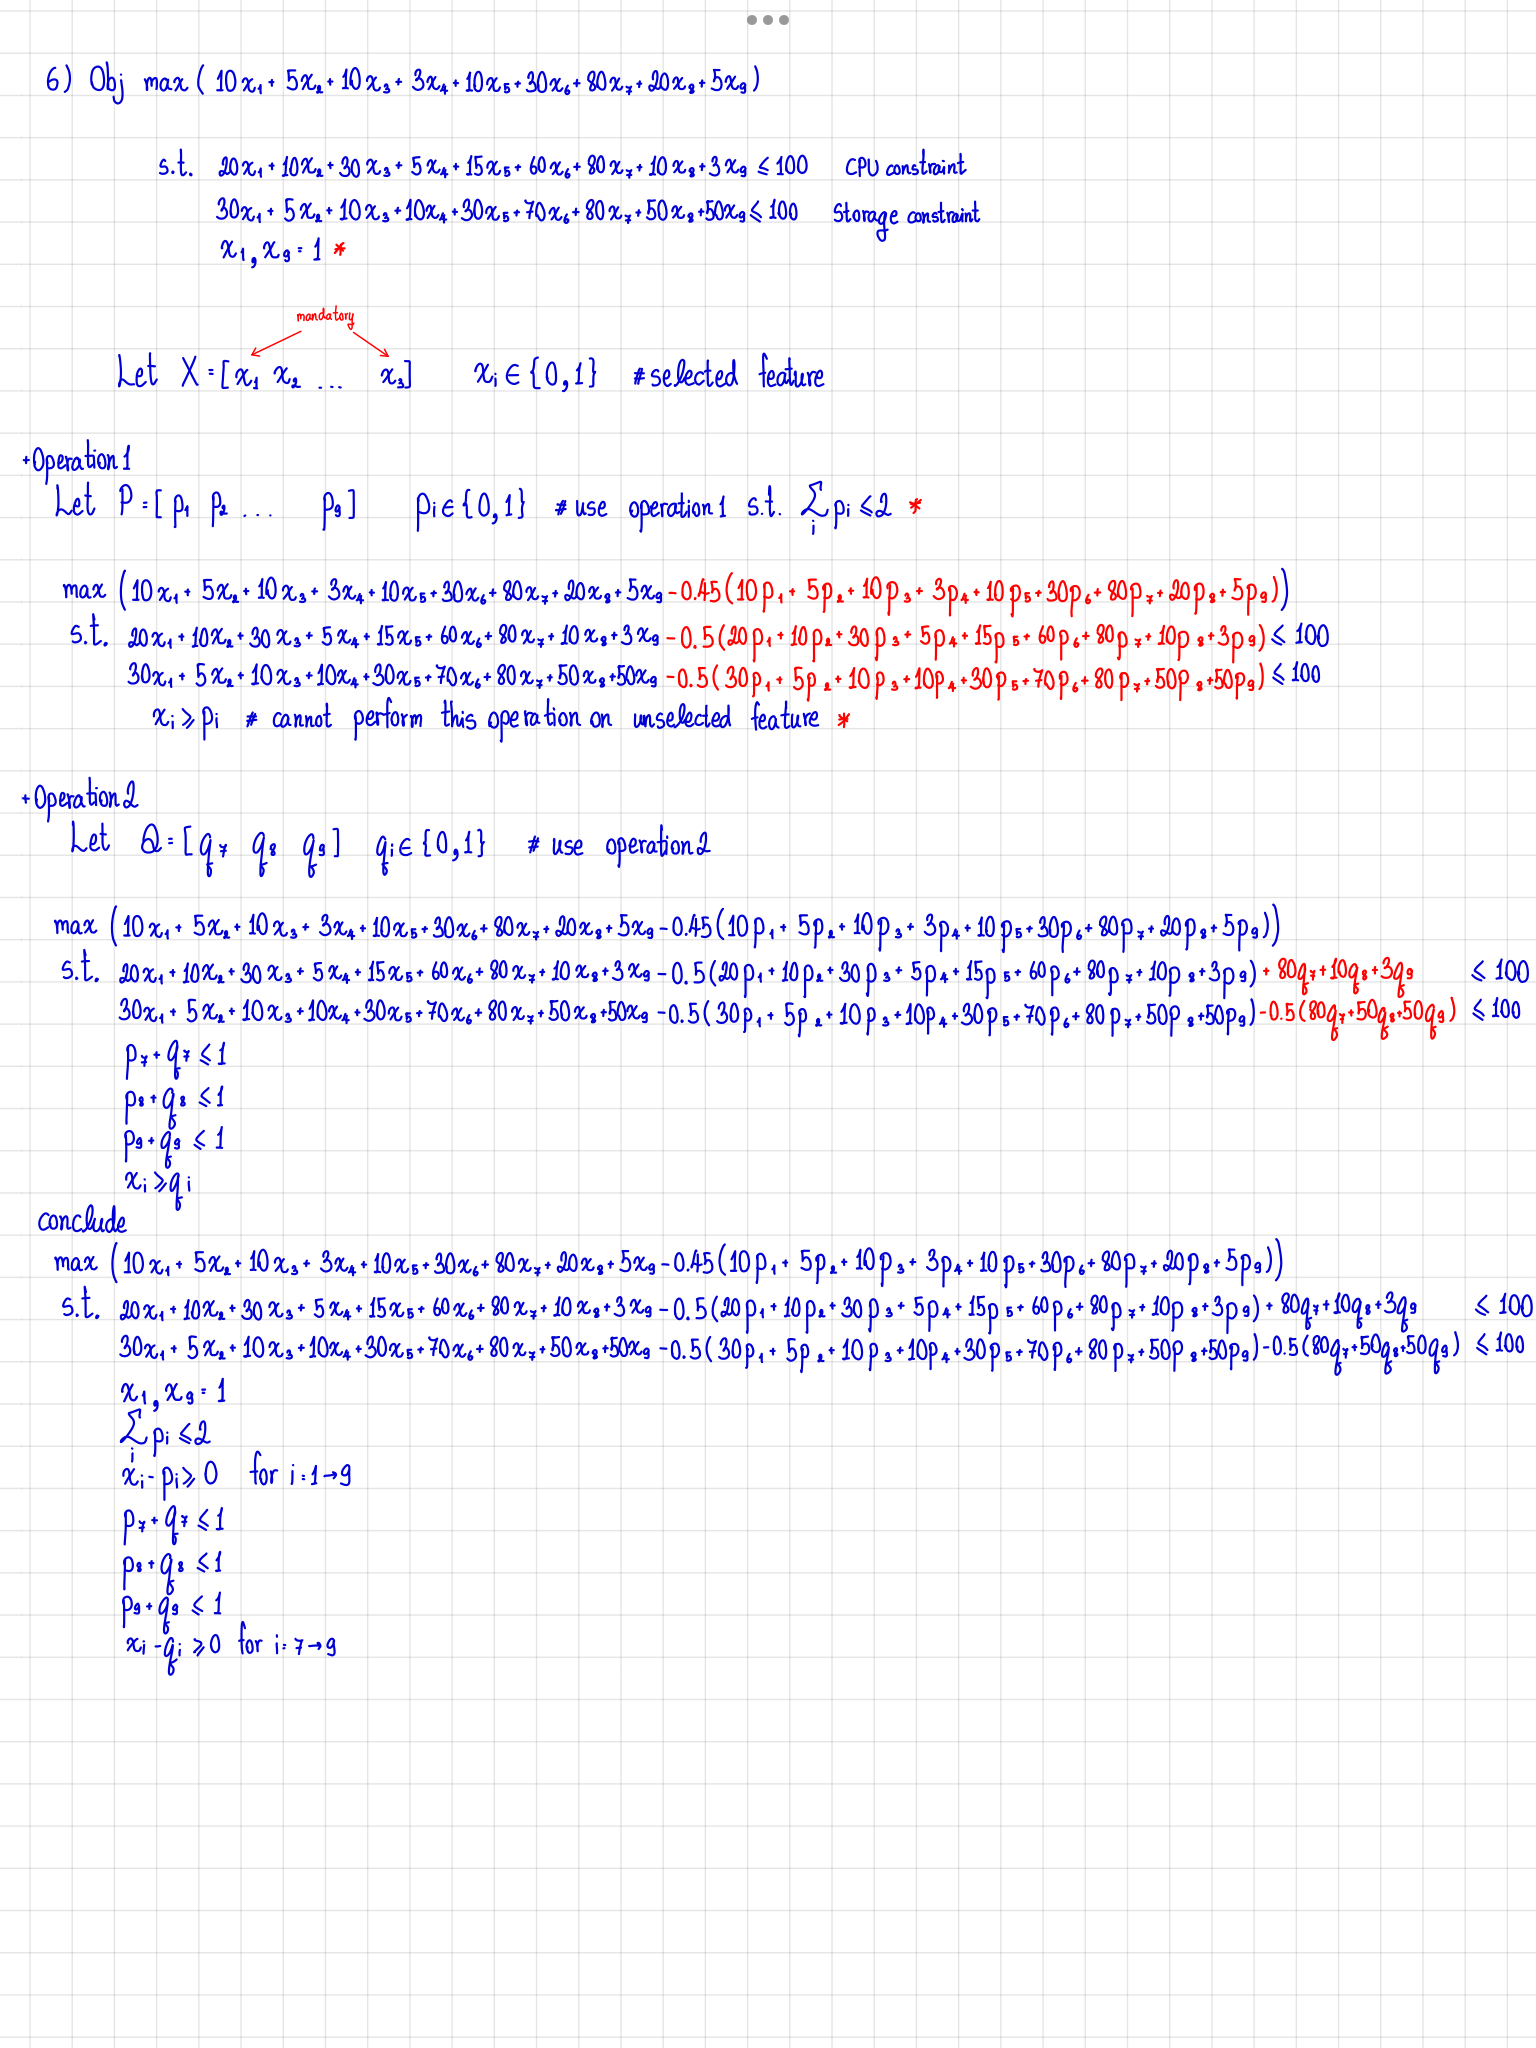 6) Obj max ( 10x₁ + 5x₂ + 10x₃ + 3x₄ + 10x₅ + 30x₆ + 80x₇ + 20x₈ + 5x₉ )
s.t. 20x₁ + 10x₂ + 30x₃ + 5x₄ + 15x₅ + 60x₆ + 80x₇ + 10x₈ + 3x₉ ≤ 100 CPU constraint
30x₁ + 5x₂ + 10x₃ + 10x₄ + 30x₅ + 70x₆ + 80x₇ + 50x₈ + 50x₉ ≤ 100 Storage constraint
x₁, x₉ = 1 *
mandatory
Let X = [ x₁ x₂ ... x₉ ] xᵢ ∈ {0,1} # selected feature
+ Operation 1
Let P = [ p₁ p₂ ... p₉ ] pᵢ ∈ {0,1} # use operation 1 s.t. ∑ᵢ pᵢ ≤ 2 *
max ( 10x₁ + 5x₂ + 10x₃ + 3x₄ + 10x₅ + 30x₆ + 80x₇ + 20x₈ + 5x₉ - 0.45 ( 10p₁ + 5p₂ + 10p₃ + 3p₄ + 10p₅ + 30p₆ + 80p₇ + 20p₈ + 5p₉ ) )
s.t. 20x₁ + 10x₂ + 30x₃ + 5x₄ + 15x₅ + 60x₆ + 80x₇ + 10x₈ + 3x₉ - 0.5 ( 20p₁ + 10p₂ + 30p₃ + 5p₄ + 15p₅ + 60p₆ + 80p₇ + 10p₈ + 3p₉ ) ≤ 100
30x₁ + 5x₂ + 10x₃ + 10x₄ + 30x₅ + 70x₆ + 80x₇ + 50x₈ + 50x₉ - 0.5 ( 30p₁ + 5p₂ + 10p₃ + 10p₄ + 30p₅ + 70p₆ + 80p₇ + 50p₈ + 50p₉ ) ≤ 100
xᵢ ≥ pᵢ # cannot perform this operation on unselected feature *
+ Operation 2
Let Q = [ q₇ q₈ q₉ ] qᵢ ∈ {0,1} # use operation 2
max ( 10x₁ + 5x₂ + 10x₃ + 3x₄ + 10x₅ + 30x₆ + 80x₇ + 20x₈ + 5x₉ - 0.45 ( 10p₁ + 5p₂ + 10p₃ + 3p₄ + 10p₅ + 30p₆ + 80p₇ + 20p₈ + 5p₉ ) )
s.t. 20x₁ + 10x₂ + 30x₃ + 5x₄ + 15x₅ + 60x₆ + 80x₇ + 10x₈ + 3x₉ - 0.5 ( 20p₁ + 10p₂ + 30p₃ + 5p₄ + 15p₅ + 60p₆ + 80p₇ + 10p₈ + 3p₉ ) + 80q₇ + 10q₈ + 3q₉ ≤ 100
30x₁ + 5x₂ + 10x₃ + 10x₄ + 30x₅ + 70x₆ + 80x₇ + 50x₈ + 50x₉ - 0.5 ( 30p₁ + 5p₂ + 10p₃ + 10p₄ + 30p₅ + 70p₆ + 80p₇ + 50p₈ + 50p₉ ) - 0.5 ( 80q₇ + 50q₈ + 50q₉ ) ≤ 100
p₇ + q₇ ≤ 1
p₈ + q₈ ≤ 1
p₉ + q₉ ≤ 1
xᵢ ≥ qᵢ
conclude
max ( 10x₁ + 5x₂ + 10x₃ + 3x₄ + 10x₅ + 30x₆ + 80x₇ + 20x₈ + 5x₉ - 0.45 ( 10p₁ + 5p₂ + 10p₃ + 3p₄ + 10p₅ + 30p₆ + 80p₇ + 20p₈ + 5p₉ ) )
s.t. 20x₁ + 10x₂ + 30x₃ + 5x₄ + 15x₅ + 60x₆ + 80x₇ + 10x₈ + 3x₉ - 0.5 ( 20p₁ + 10p₂ + 30p₃ + 5p₄ + 15p₅ + 60p₆ + 80p₇ + 10p₈ + 3p₉ ) + 80q₇ + 10q₈ + 3q₉ ≤ 100
30x₁ + 5x₂ + 10x₃ + 10x₄ + 30x₅ + 70x₆ + 80x₇ + 50x₈ + 50x₉ - 0.5 ( 30p₁ + 5p₂ + 10p₃ + 10p₄ + 30p₅ + 70p₆ + 80p₇ + 50p₈ + 50p₉ ) - 0.5 ( 80q₇ + 50q₈ + 50q₉ ) ≤ 100
x₁, x₉ = 1
∑ᵢ pᵢ ≤ 2
xᵢ - pᵢ ≥ 0 for i = 1 → 9
p₇ + q₇ ≤ 1
p₈ + q₈ ≤ 1
p₉ + q₉ ≤ 1
xᵢ - qᵢ ≥ 0 for i = 7 → 9